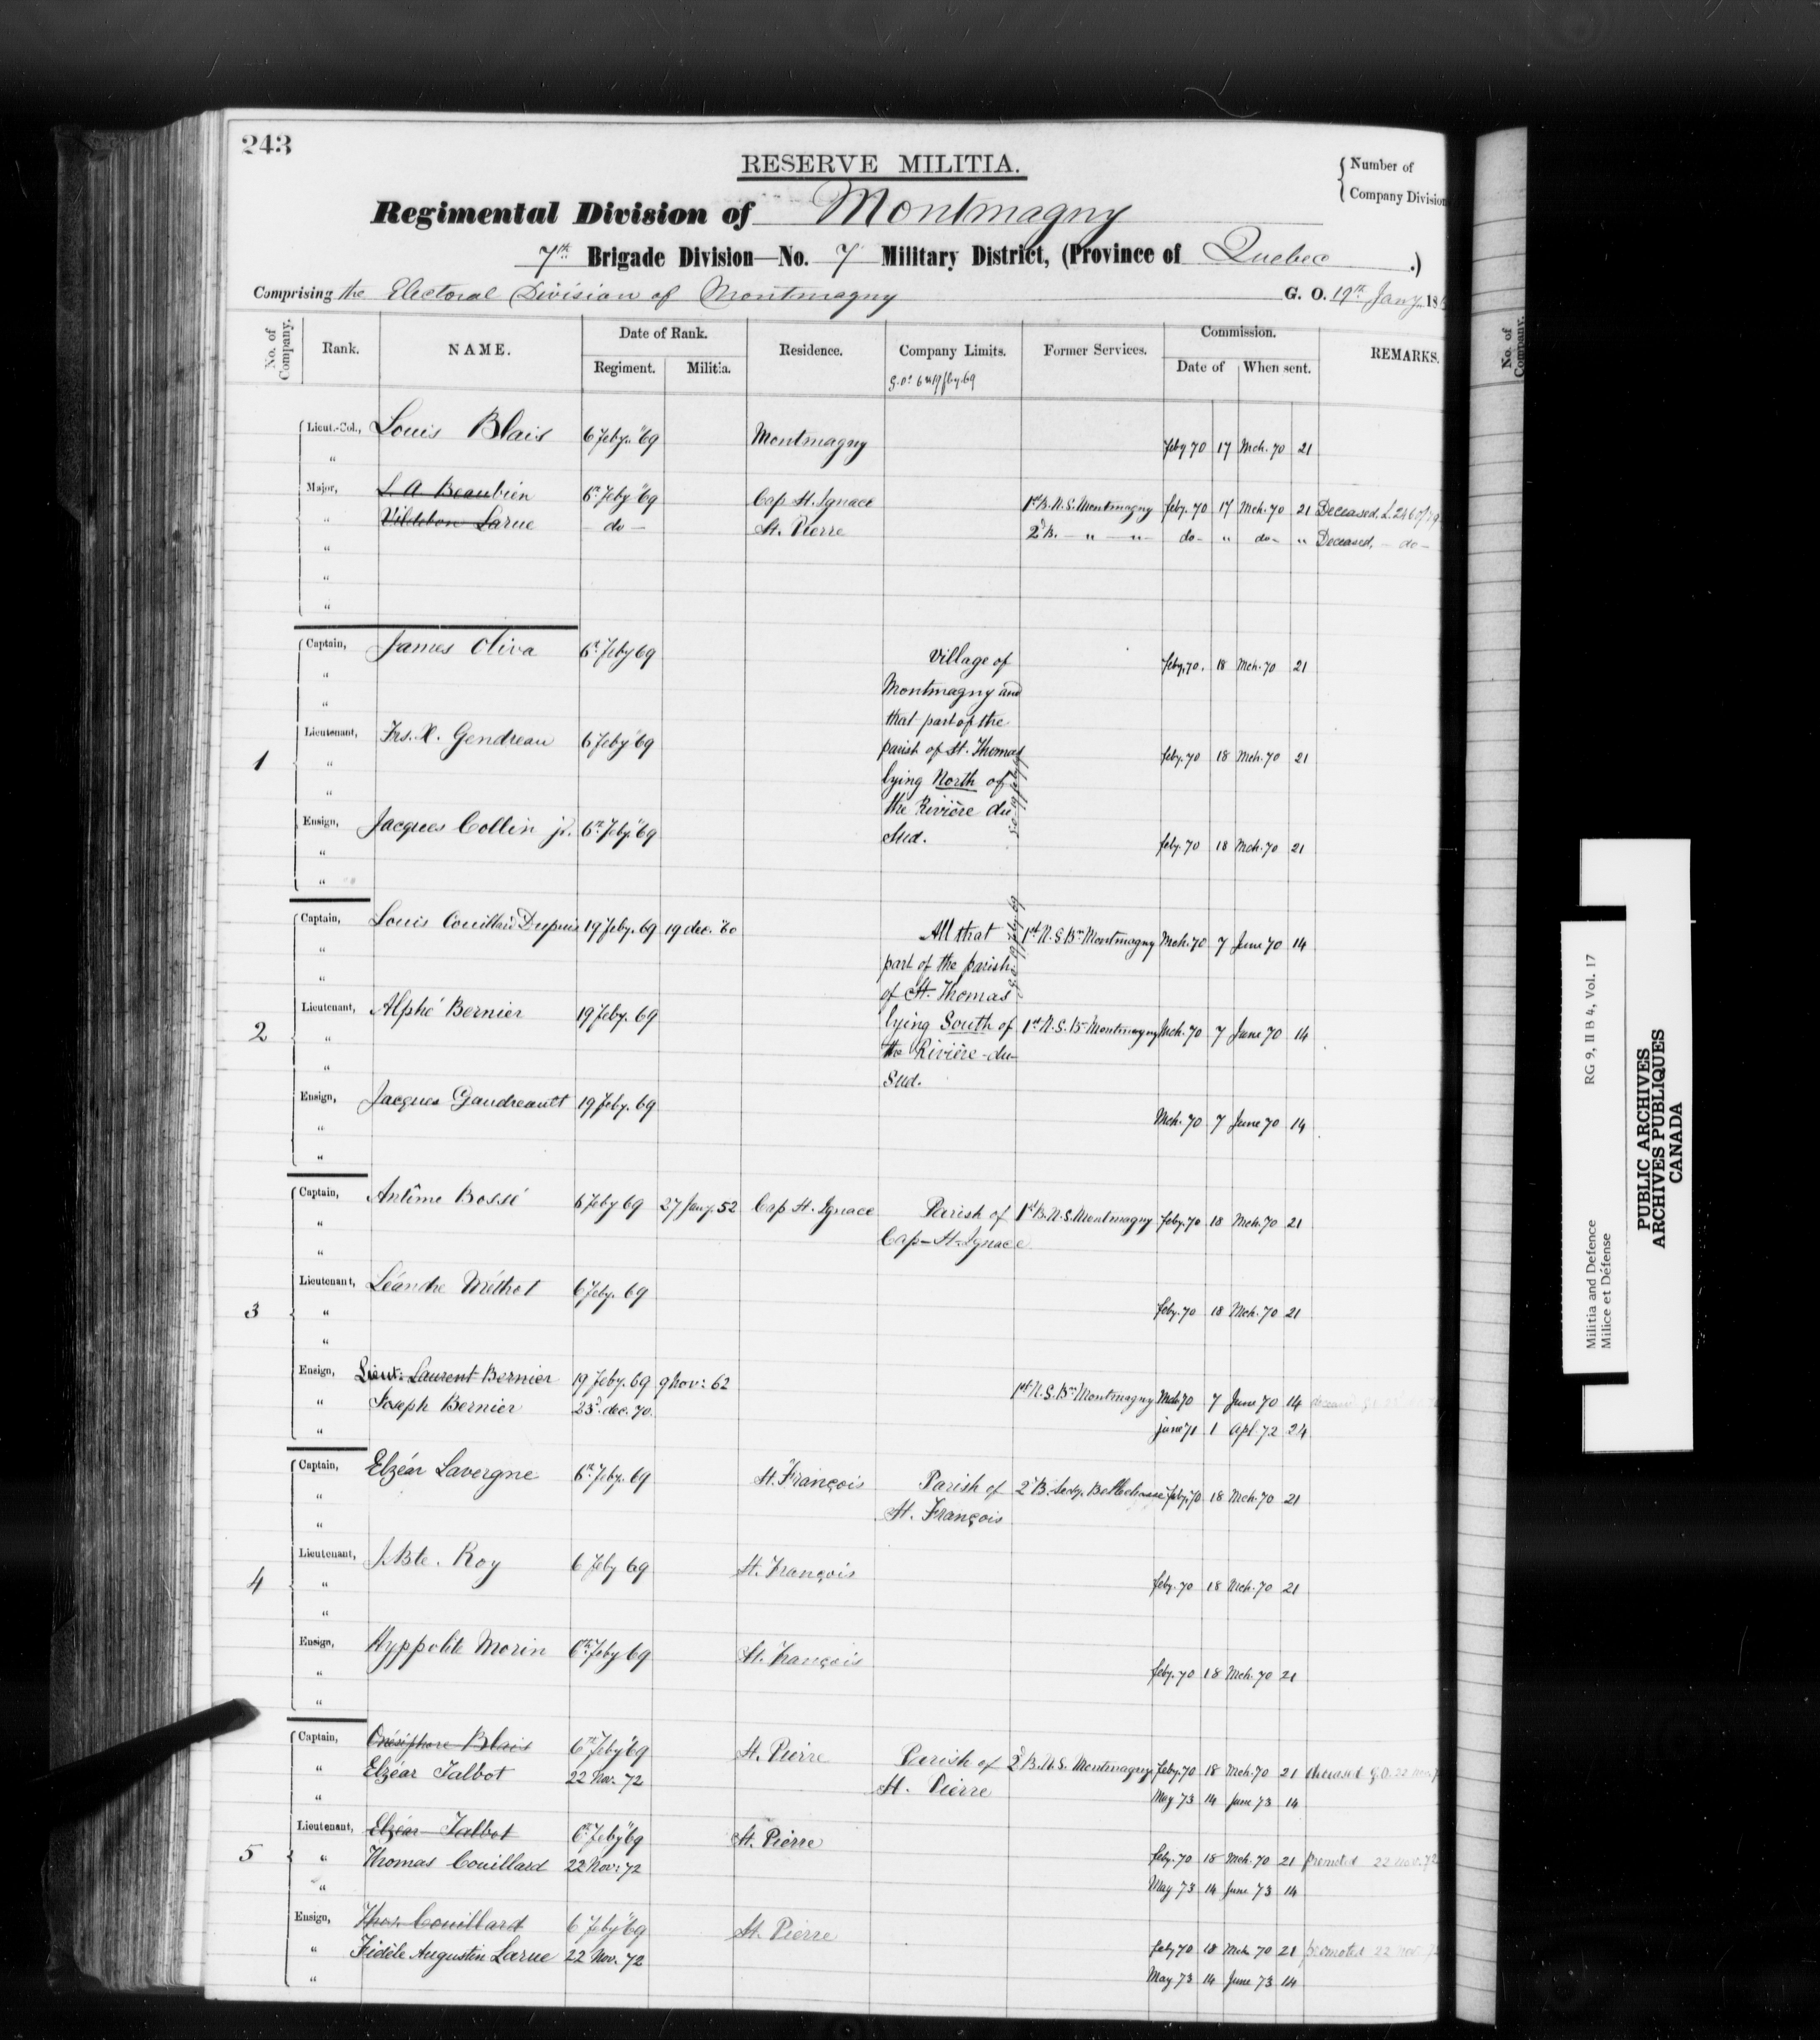 243
RESERVE MILITIA.
{ Number of
Company Division
Regimental Division of Montmagny
7th Brigade Division—No. 7 Military District, (Province of Quebec .)
Comprising the Electoral Division of Montmagny G. O. 19th Jany. 18
No. of Company. Rank. NAME. Date of Rank. Residence. Company Limits. Former Services. Commission. REMARKS.
Regiment. Militia. Date of When sent.
Lieut.-Col., Louis Blais 6 Feby. 69 Montmagny feby 70 17 Mch. 70 21
"
Major, L. A. Beaubien 6th Feby 69 Cap St. Ignace 1st B. N. S. Montmagny feby. 70 17 Mch. 70 21 Deceased.
" Vildebon Larue – do – St. Pierre 2d B. – " – " – do – " do – " Deceased, – do –
"
"
"
Captain, James Oliva 6th Feby 69 Village of feby. 70. 18 Mch. 70 21
" Montmagny and
" that part of the
Lieutenant, Frs. X. Gendreau 6 Feby 69 parish of St. Thomas feby. 70 18 Mch. 70 21
1 " lying North of
" the Rivière du
Ensign, Jacques Collin jr. 6th Feby. 69 Sud. feby. 70 18 Mch. 70 21
"
"
Captain, Louis Couillard Dupuis 19 Feby. 69 19 dec. 60 All that 1st N. S. Bn Montmagny Mch. 70 7 June 70 14
" part of the parish
" of St. Thomas
Lieutenant, Alphé Bernier 19 Feby. 69 lying South of 1st N. S. Bn Montmagny Mch. 70 7 June 70 14
2 " the Rivière-du-
" Sud.
Ensign, Jacques Gaudreault 19 Feby. 69 Mch. 70 7 June 70 14
"
"
Captain, Antime Bossé 6 Feby 69 27 Jany. 52 Cap St. Ignace Parish of 1st B. N. S. Montmagny feby. 70 18 Mch. 70 21
" Cap-St-Ignace
"
Lieutenant, Léandre Méthot 6 Feby. 69 feby. 70 18 Mch. 70 21
3 "
"
Ensign, Lieut. Laurent Bernier 19 Feby. 69 9 Nov: 62 1st N. S. Bn Montmagny Mch 70 7 June 70 14
" Joseph Bernier 23d dec. 70. june 71 1 Apl 72 24
"
Captain, Elzéar Lavergne 6th Feby. 69 St. François Parish of 2d B. Sedy. Bellechasse feby. 70 18 Mch. 70 21
" St. François
"
Lieutenant, J. Bte. Roy 6 Feby 69 St. François feby. 70 18 Mch. 70 21
4 "
"
Ensign, Hyppolite Morin 6th Feby 69 St. François feby. 70 18 Mch. 70 21
"
"
Captain, Onésiphore Blais 6th Feby 69 St. Pierre Parish of 2d B. N. S. Montmagny feby. 70 18 Mch. 70 21 deceased G.O. 22 Nov
" Elzéar Talbot 22 Nov. 72 St. Pierre May 73 14 June 73 14
"
Lieutenant, Elzéar Talbot 6th Feby 69 St. Pierre feby. 70 18 Mch. 70 21 promoted 22 nov. 72
5 " Thomas Couillard 22 Nov: 72 May 73 14 June 73 14
"
Ensign, Thos. Couillard 6 Feby 69 St. Pierre feby 70 18 Mch. 70 21 promoted 22 nov.
" Fidèle Augustin Larue 22 Nov. 72 May. 73 14 June 73 14
"
No. of Company.
Militia and Defence RG 9, II B 4, Vol. 17
Milice et Défense
PUBLIC ARCHIVES
ARCHIVES PUBLIQUES
CANADA